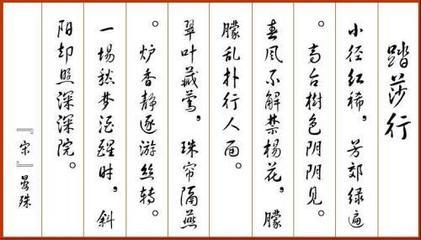 踏莎行
小径红稀，芳郊绿遍
。高台树色阴阴见。
春风不解禁杨花，朦
朦乱扑行人面。
翠叶藏莺，珠帘隔燕
。炉香静逐游丝转。
一场愁梦酒醒时，斜
阳却照深深院。
『宋』晏殊